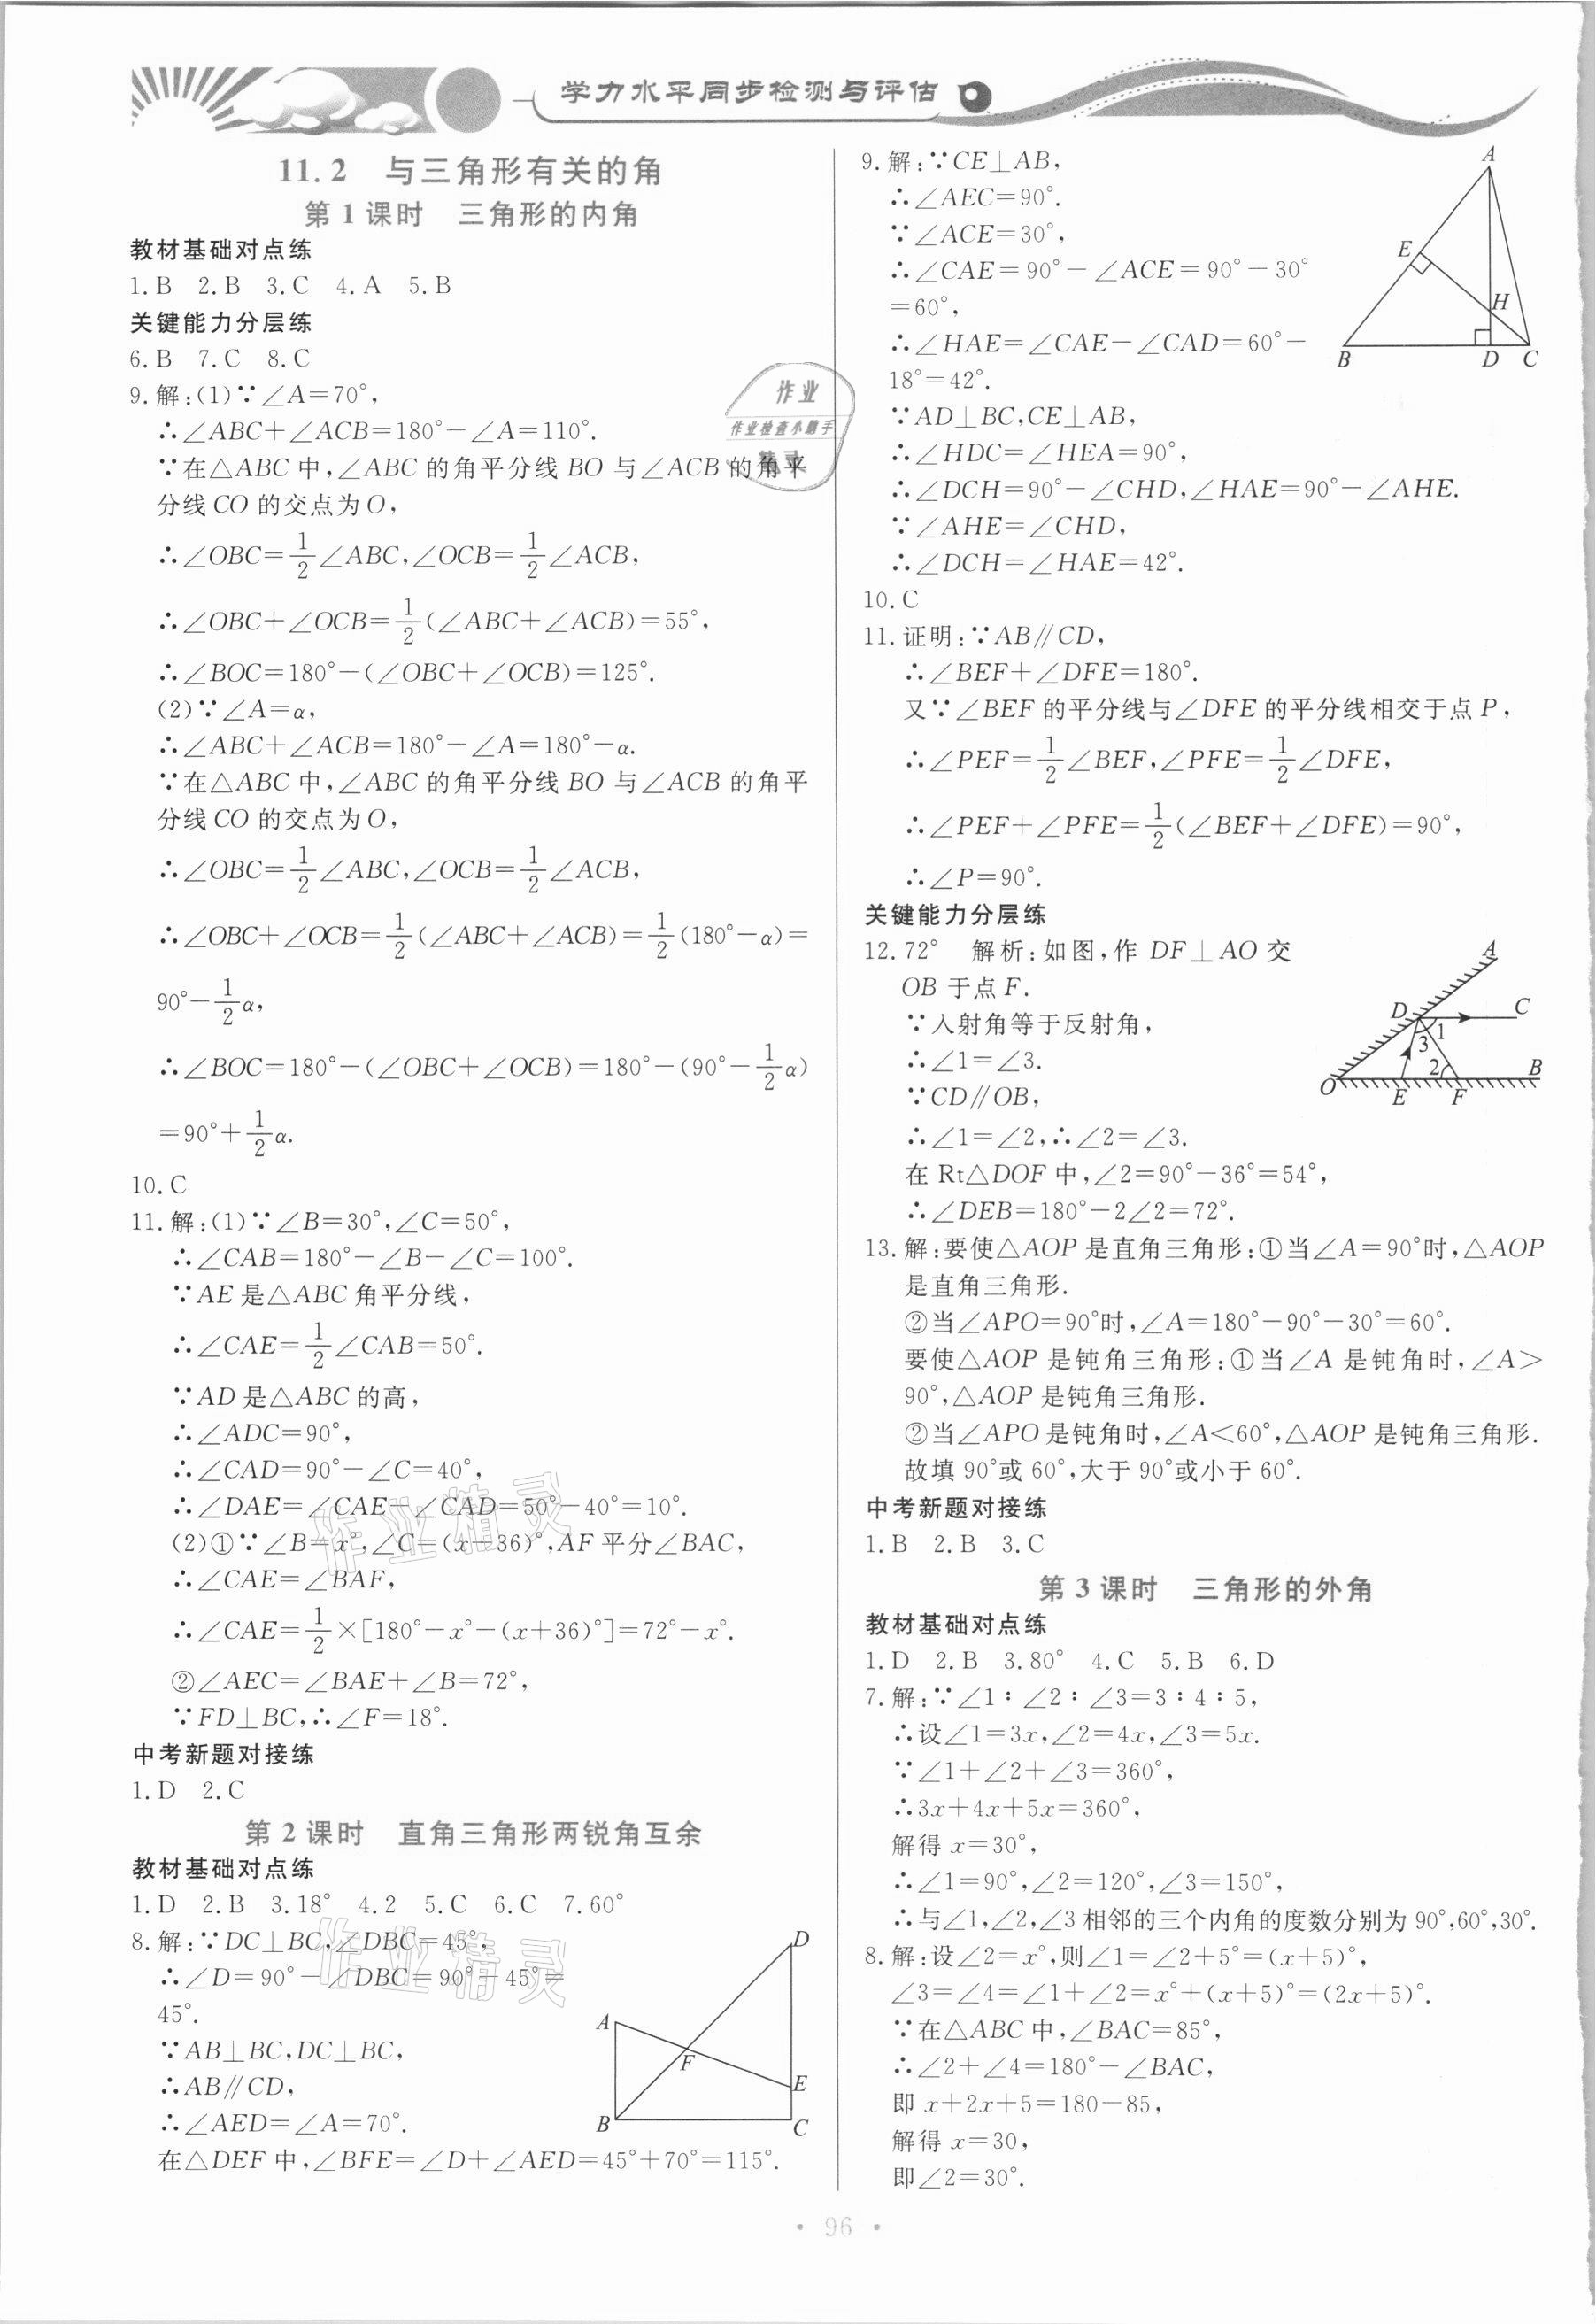 学力水平同步检测与评估
11.2 与三角形有关的角
第1课时 三角形的内角
教材基础对点练
1.B 2.B 3.C 4.A 5.B
关键能力分层练
6.B 7.C 8.C
9.解:(1)∵∠A=70°,
∴∠ABC+∠ACB=180°-∠A=110°.
∵在△ABC中,∠ABC的角平分线BO与∠ACB的角平
分线CO的交点为O,
∴∠OBC=1/2∠ABC,∠OCB=1/2∠ACB,
∴∠OBC+∠OCB=1/2(∠ABC+∠ACB)=55°,
∴∠BOC=180°-(∠OBC+∠OCB)=125°.
(2)∵∠A=α,
∴∠ABC+∠ACB=180°-∠A=180°-α.
∵在△ABC中,∠ABC的角平分线BO与∠ACB的角平
分线CO的交点为O,
∴∠OBC=1/2∠ABC,∠OCB=1/2∠ACB,
∴∠OBC+∠OCB=1/2(∠ABC+∠ACB)=1/2(180°-α)=
90°-1/2α,
∴∠BOC=180°-(∠OBC+∠OCB)=180°-(90°-1/2α)
=90°+1/2α.
10.C
11.解:(1)∵∠B=30°,∠C=50°,
∴∠CAB=180°-∠B-∠C=100°.
∵AE是△ABC角平分线,
∴∠CAE=1/2∠CAB=50°.
∵AD是△ABC的高,
∴∠ADC=90°,
∴∠CAD=90°-∠C=40°,
∴∠DAE=∠CAE-∠CAD=50°-40°=10°.
(2)①∵∠B=x°,∠C=(x+36)°,AF平分∠BAC,
∴∠CAE=∠BAF,
∴∠CAE=1/2×[180°-x°-(x+36)°]=72°-x°.
②∠AEC=∠BAE+∠B=72°,
∵FD⊥BC,∴∠F=18°.
中考新题对接练
1.D 2.C
第2课时 直角三角形两锐角互余
教材基础对点练
1.D 2.B 3.18° 4.2 5.C 6.C 7.60°
8.解:∵DC⊥BC,∠DBC=45°,
∴∠D=90°-∠DBC=90°-45°=
45°.
∵AB⊥BC,DC⊥BC,
∴AB∥CD,
∴∠AED=∠A=70°.
在△DEF中,∠BFE=∠D+∠AED=45°+70°=115°.
A
B
C
D
E
F
9.解:∵CE⊥AB,
∴∠AEC=90°.
∵∠ACE=30°,
∴∠CAE=90°-∠ACE=90°-30°
=60°,
∴∠HAE=∠CAE-∠CAD=60°-
18°=42°.
∵AD⊥BC,CE⊥AB,
∴∠HDC=∠HEA=90°,
∴∠DCH=90°-∠CHD,∠HAE=90°-∠AHE.
∵∠AHE=∠CHD,
∴∠DCH=∠HAE=42°.
A
E
H
B
D
C
10.C
11.证明:∵AB∥CD,
∴∠BEF+∠DFE=180°.
又∵∠BEF的平分线与∠DFE的平分线相交于点P,
∴∠PEF=1/2∠BEF,∠PFE=1/2∠DFE,
∴∠PEF+∠PFE=1/2(∠BEF+∠DFE)=90°,
∴∠P=90°.
关键能力分层练
12.72° 解析:如图,作DF⊥AO交
OB于点F.
∵入射角等于反射角,
∴∠1=∠3.
∵CD∥OB,
∴∠1=∠2,∴∠2=∠3.
在Rt△DOF中,∠2=90°-36°=54°,
∴∠DEB=180°-2∠2=72°.
A
D
C
1
3
2
O
E
F
B
13.解:要使△AOP是直角三角形:①当∠A=90°时,△AOP
是直角三角形.
②当∠APO=90°时,∠A=180°-90°-30°=60°.
要使△AOP是钝角三角形:①当∠A是钝角时,∠A>
90°,△AOP是钝角三角形.
②当∠APO是钝角时,∠A<60°,△AOP是钝角三角形.
故填90°或60°,大于90°或小于60°.
中考新题对接练
1.B 2.B 3.C
第3课时 三角形的外角
教材基础对点练
1.D 2.B 3.80° 4.C 5.B 6.D
7.解:∵∠1:∠2:∠3=3:4:5,
∴设∠1=3x,∠2=4x,∠3=5x.
∵∠1+∠2+∠3=360°,
∴3x+4x+5x=360°,
解得x=30°,
∴∠1=90°,∠2=120°,∠3=150°,
∴与∠1,∠2,∠3相邻的三个内角的度数分别为90°,60°,30°.
8.解:设∠2=x°,则∠1=∠2+5°=(x+5)°,
∠3=∠4=∠1+∠2=x°+(x+5)°=(2x+5)°.
∵在△ABC中,∠BAC=85°,
∴∠2+∠4=180°-∠BAC,
即x+2x+5=180-85,
解得x=30,
即∠2=30°.
作业
作业检查小助手
精灵
作业精灵
作业精灵
·96·